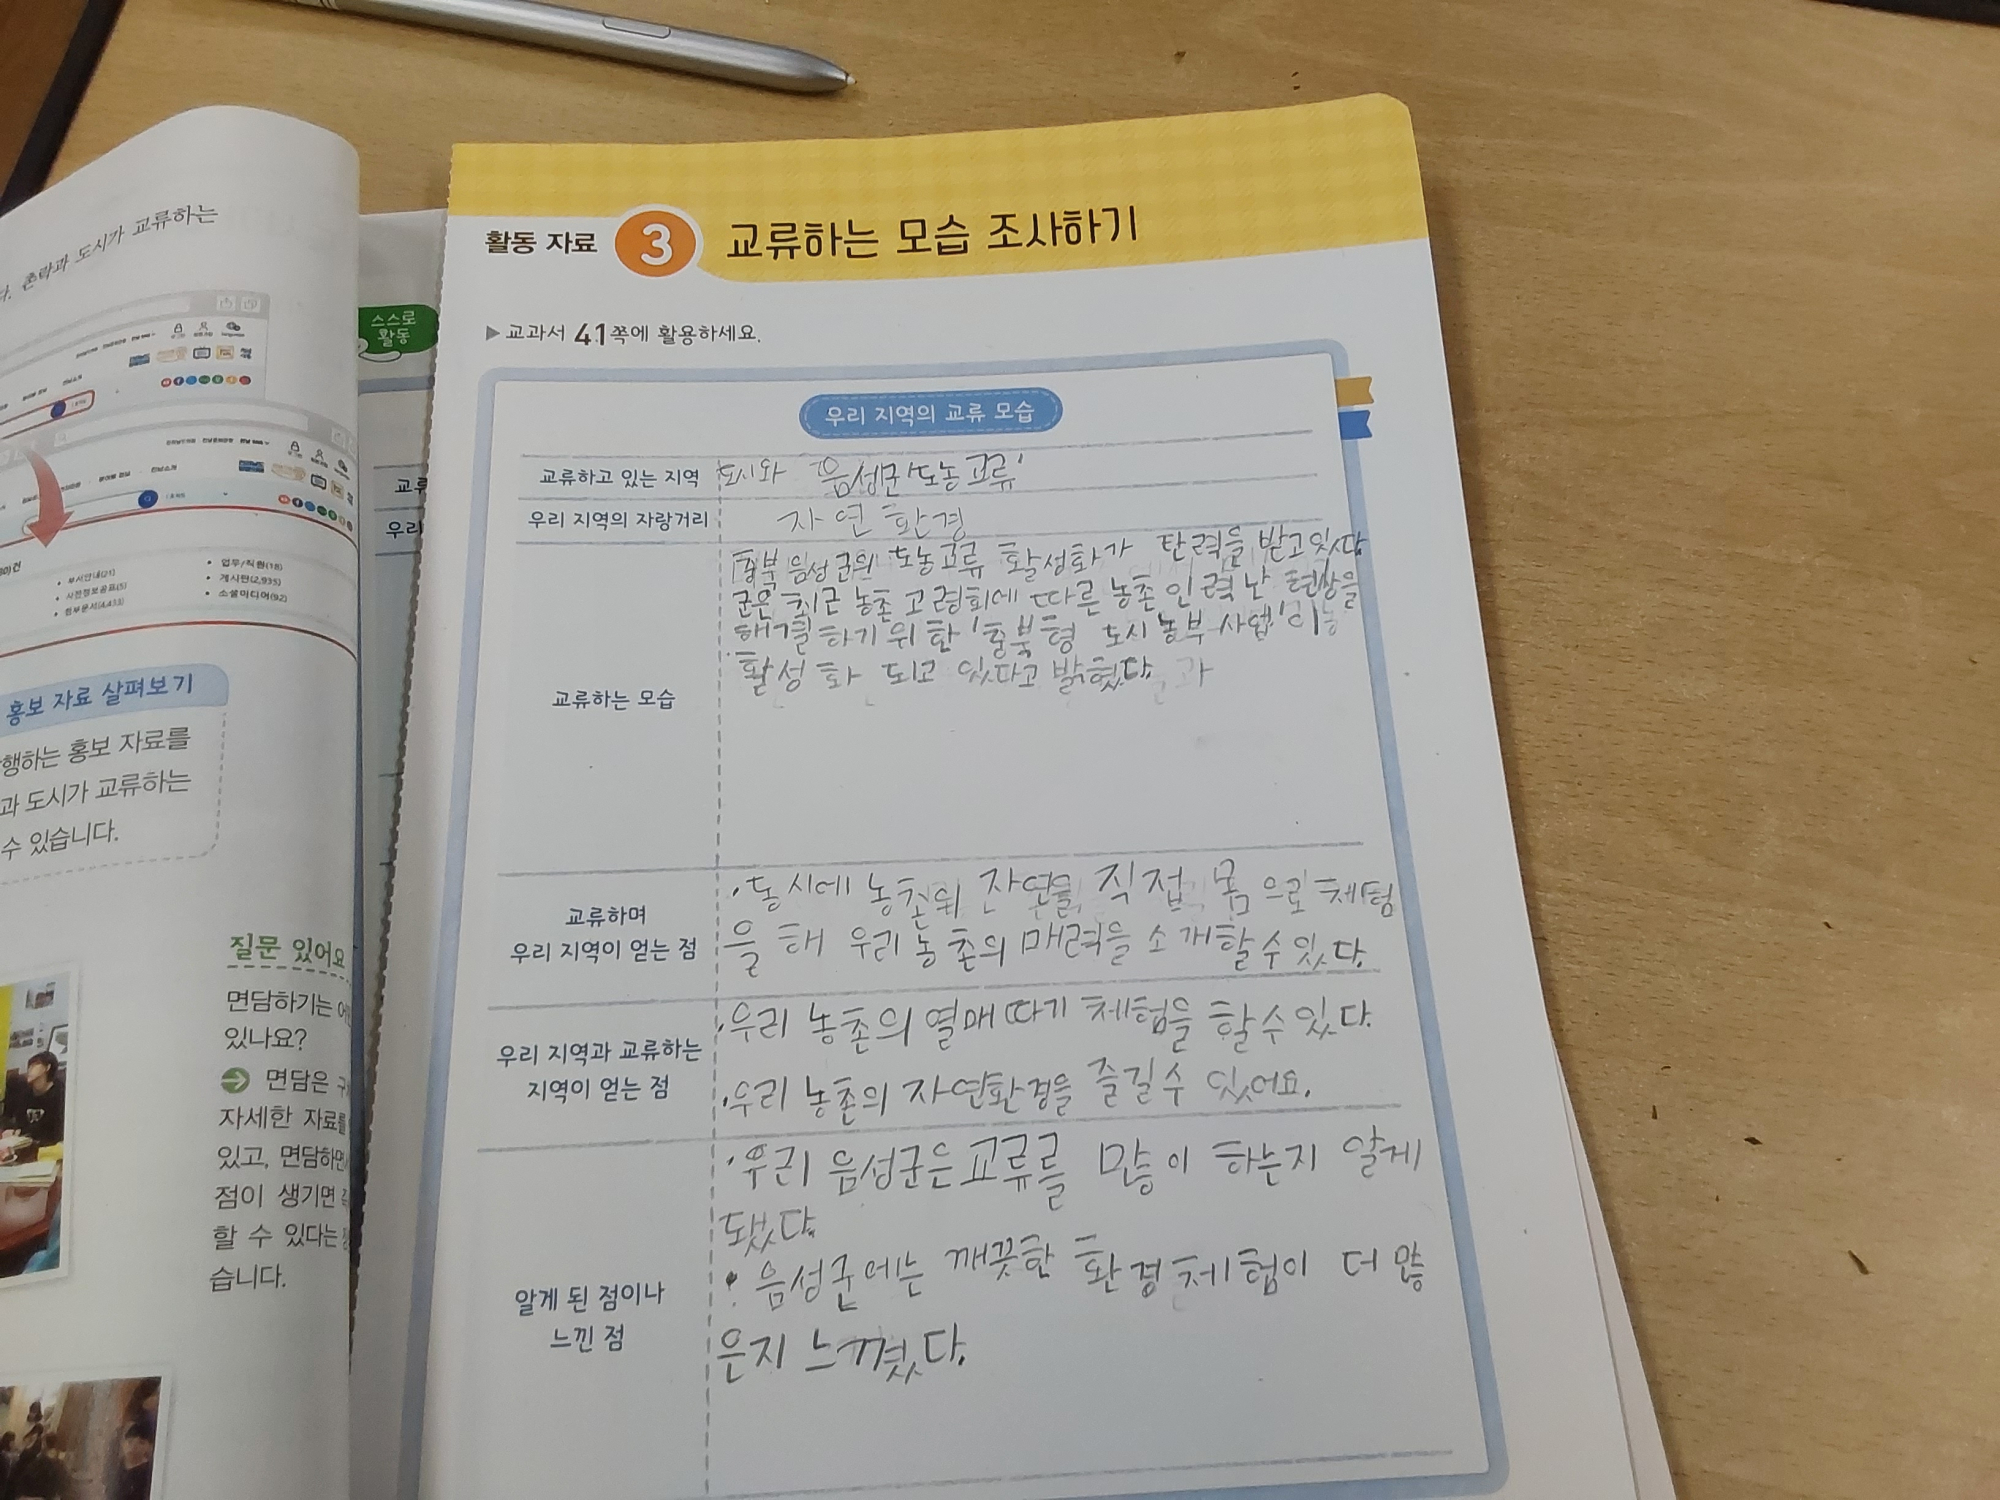 촌락과 도시가 교류하는
업무/직원(18)
게시판(2,935)
소셜미디어(92)
부서안내(21)
사전정보공표(5)
첨부문서(4,433)
홍보 자료 살펴보기
행하는 홍보 자료를
과 도시가 교류하는
수 있습니다.
질문 있어요
면담하기는
있나요?
면담은
자세한 자료를
있고, 면담하면
점이 생기면
할 수 있다는
습니다.
스스로
활동
활동 자료 3 교류하는 모습 조사하기
▶교과서 41쪽에 활용하세요.
우리 지역의 교류 모습
교류하고 있는 지역 도시와 음성군 '도농교류'
우리 지역의 자랑거리 자연 환경
교류하는 모습
충북 음성군의 도농교류 활성화가 탄력을 받고있다
군은 최근 농촌 고령화에 따른 농촌 인력 난 현상을
해결하기 위한 '충북형 도시농부 사업'이
활성화 되고 있다고 밝혔다.
교류하며
우리 지역이 얻는 점
·동시에 농촌의 자연을 직접 몸으로 체험
을 해 우리 농촌의 매력을 소개할 수 있다.
우리 지역과 교류하는
지역이 얻는 점
·우리 농촌의 열매 따기 체험을 할 수 있다.
·우리 농촌의 자연환경을 즐길 수 있어요.
알게 된 점이나
느낀 점
·우리 음성군은 교류를 많이 하는지 알게
됐다.
·음성군에는 깨끗한 환경체험이 더 많
은지 느꼈다.